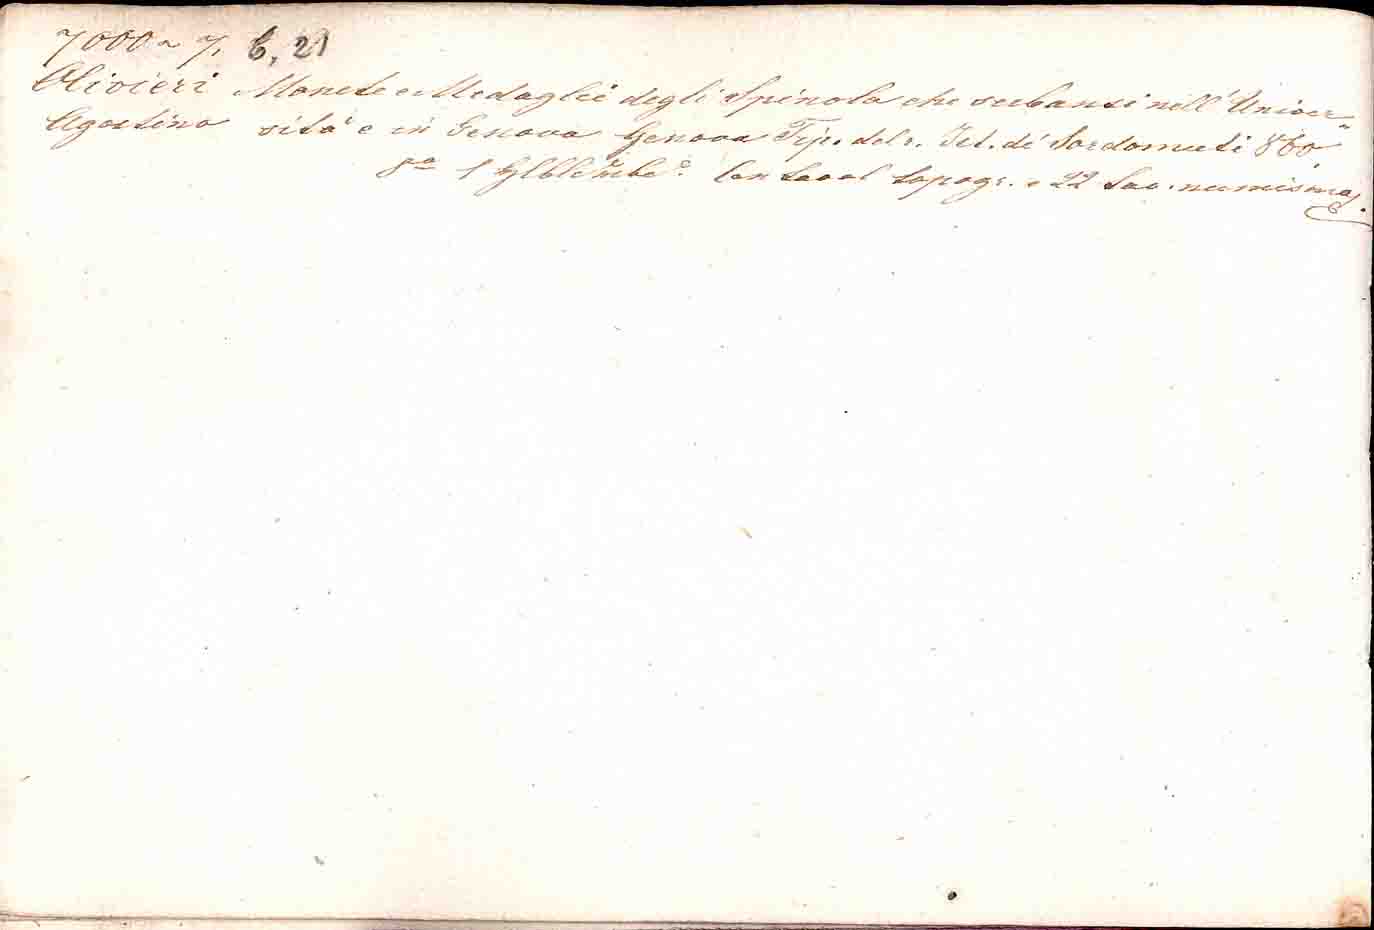 7000~7, 6, 21
Olivieri Monete e Medaglie degli Spinola che serbansi nell' Univer„
Agostino sità e in Genova Genova Tip. del r. Ist. de' Sordomuti 860
8° 1 Con tavol topogr. e 22 tav. numismat.